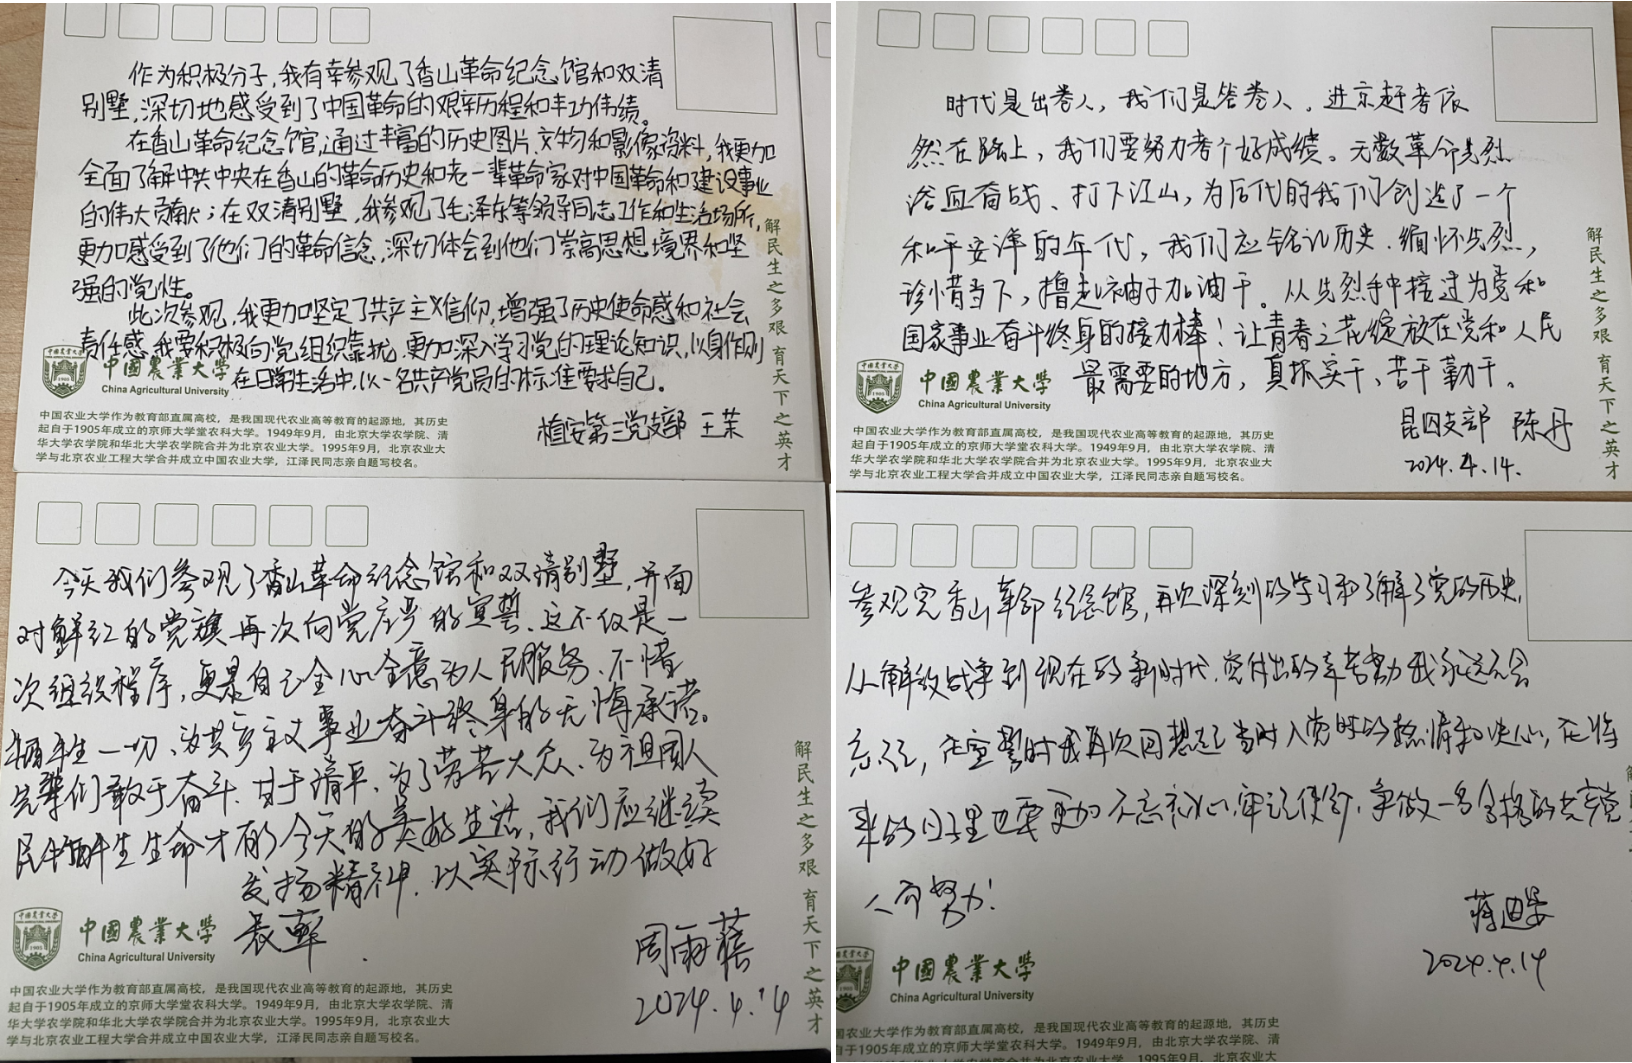 作为积极分子，我有幸参观了香山革命纪念馆和双清
别墅，深切地感受到了中国革命的艰辛历程和丰功伟绩。
在香山革命纪念馆，通过丰富的历史图片、文物和影像资料，我更加
全面了解中共中央在香山的革命历史和老一辈革命家对中国革命和建设事业
的伟大贡献；在双清别墅，我参观了毛泽东等领导同志工作和生活场所，
更加感受到了他们的革命信念，深切体会到他们崇高思想境界和坚
强的党性。
此次参观，我更加坚定了共产主义信仰，增强了历史使命感和社会
责任感，我要积极向党组织靠拢，更加深入学习党的理论知识，以身作则
在日常生活中，以一名共产党员的标准要求自己。
植安第三党支部 王茉
解民生之多艰 育天下之英才
中國農業大學
China Agricultural University
中国农业大学作为教育部直属高校，是我国现代农业高等教育的起源地，其历史
起自于1905年成立的京师大学堂农科大学。1949年9月，由北京大学农学院、清
华大学农学院和华北大学农学院合并为北京农业大学。1995年9月，北京农业大
学与北京农业工程大学合并成立中国农业大学，江泽民同志亲自题写校名。
时代是出卷人，我们是答卷人，进京赶考依
然在路上，我们要努力考个好成绩。无数革命先烈
浴血奋战、打下江山，为后代的我们创造了一个
和平安详的年代，我们应铭记历史、缅怀先烈，
珍惜当下，撸起袖子加油干。从先烈手中接过为党和
国家事业奋斗终身的接力棒！让青春之花绽放在党和人民
最需要的地方，真抓实干、苦干勤干。
昆四支部 陈丹
2024.4.14.
解民生之多艰 育天下之英才
中國農業大學
China Agricultural University
中国农业大学作为教育部直属高校，是我国现代农业高等教育的起源地，其历史
起自于1905年成立的京师大学堂农科大学。1949年9月，由北京大学农学院、清
华大学农学院和华北大学农学院合并为北京农业大学。1995年9月，北京农业大
学与北京农业工程大学合并成立中国农业大学，江泽民同志亲自题写校名。
今天我们参观了香山革命纪念馆和双清别墅，并面
对鲜红的党旗再次向党庄严的宣誓，这不仅是一
次组织程序，更是自己全心全意为人民服务、不惜
牺牲一切、为共产主义事业奋斗终身的无悔承诺。
先辈们敢于奋斗、甘于清平、为了劳苦大众、为祖国人
民牺牲生命才有的今天的美好生活，我们应继续
发扬精神，以实际行动做好
表率.
周雨蓓
2024.4.14
解民生之多艰 育天下之英才
中國農業大學
China Agricultural University
中国农业大学作为教育部直属高校，是我国现代农业高等教育的起源地，其历史
起自于1905年成立的京师大学堂农科大学。1949年9月，由北京大学农学院、清
华大学农学院和华北大学农学院合并为北京农业大学。1995年9月，北京农业大
学与北京农业工程大学合并成立中国农业大学，江泽民同志亲自题写校名。
参观完香山革命纪念馆，再次深刻的学习和了解了党的历史，
从解放战争到现在的新时代，党付出的辛苦努力我永远不会
忘记，在宣誓时我再次回想起当时入党时的热情和决心，在将
来的日子里也要更加不忘初心，牢记使命，争做一名合格的共产党
人而努力！
蒋迪
2024.4.14
中國農業大學
China Agricultural University
国农业大学作为教育部直属高校，是我国现代农业高等教育的起源地，其历史
自于1905年成立的京师大学堂农科大学。1949年9月，由北京大学农学院、清
大学农学院和华北大学农学院合并为北京农业大学。1995年9月，北京农业大